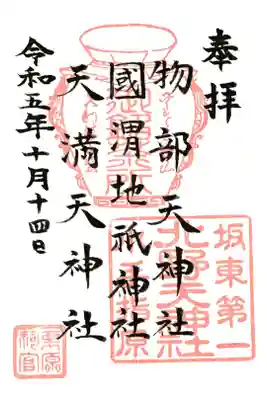 奉拝
物部天神社
國渭地祇神社
天満天神社
令和五年十月十四日
坂東第一
北野天神社